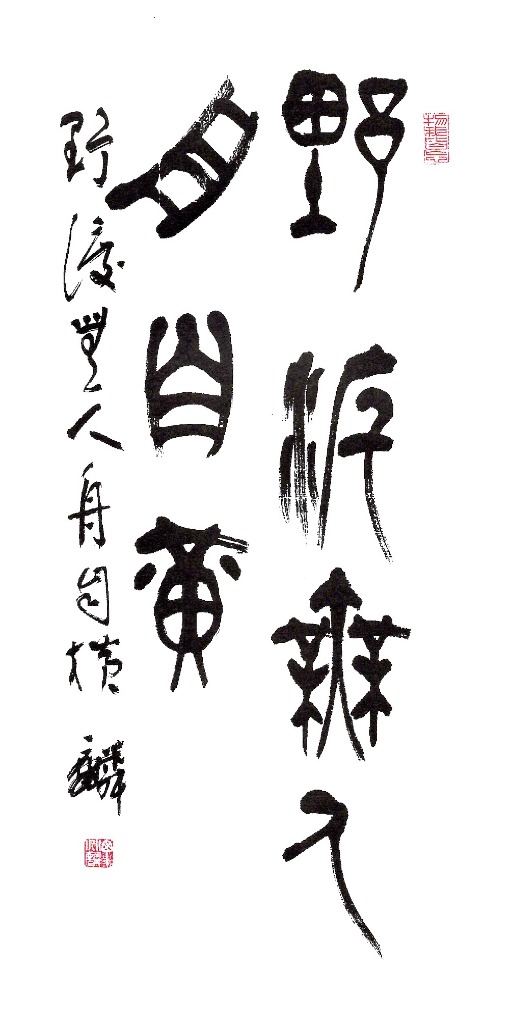 野渡無人
舟自横
野渡無人舟自横 麟